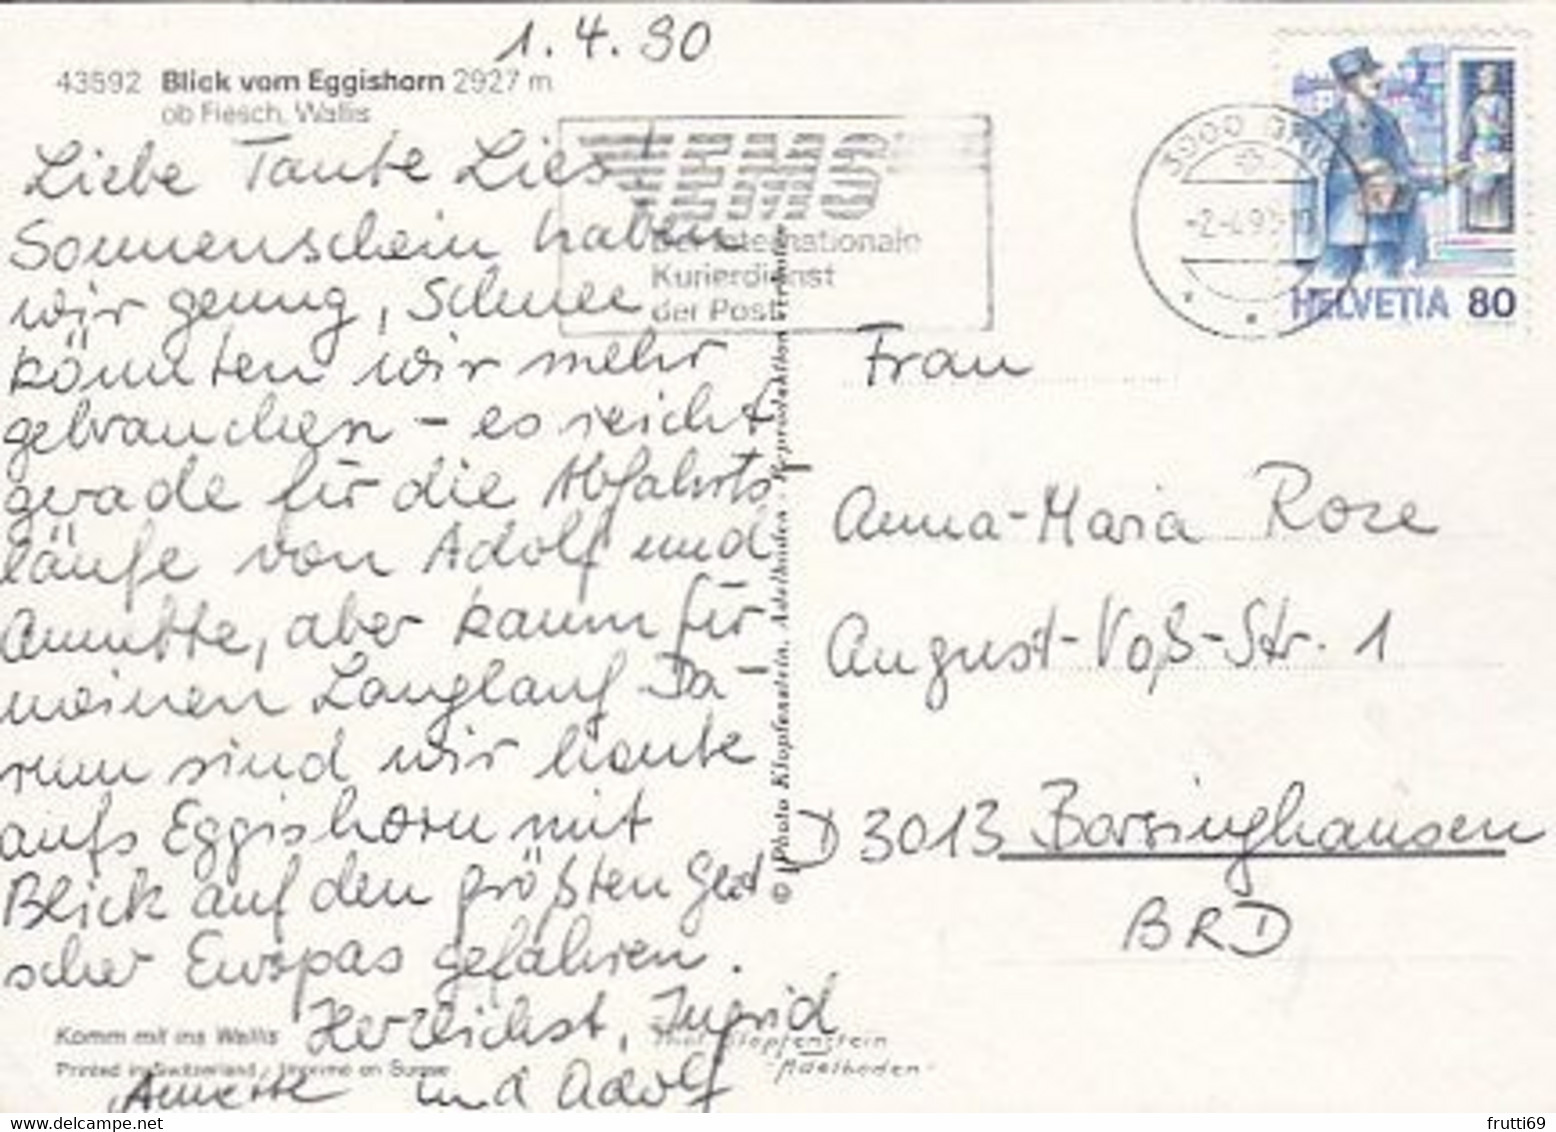 1.4.90
43592 Blick vom Eggishorn 2927 m
ob Fiesch, Wallis
Liebe Tante Lies!
Sonnenschein haben
wir genug, Schnee
könnten wir mehr
gebrauchen - es reicht
gerade für die Abfahrts
läufe von Adolf und
Annette, aber kaum für
meinen Langlauf Da-
rum sind wir heute
aufs Eggishorn mit
Blick auf den größten Glet
scher Europas gefahren.
Herzlichst, Ingrid
Annette und Adolf
Komm mit ins Wallis
Printed in Switzerland - Imprimé en Suisse
EMS
Der internationale
Kurierdienst
der Post
-2.-4.90
HELVETIA 80
© Photo Klopfenstein, Adelboden - Reproduktion verboten
Klopfenstein
Adelboden
Frau
Anna-Maria Rose
August-Voß-Str. 1
D 3013 Barsinghausen
BRD
frutti69